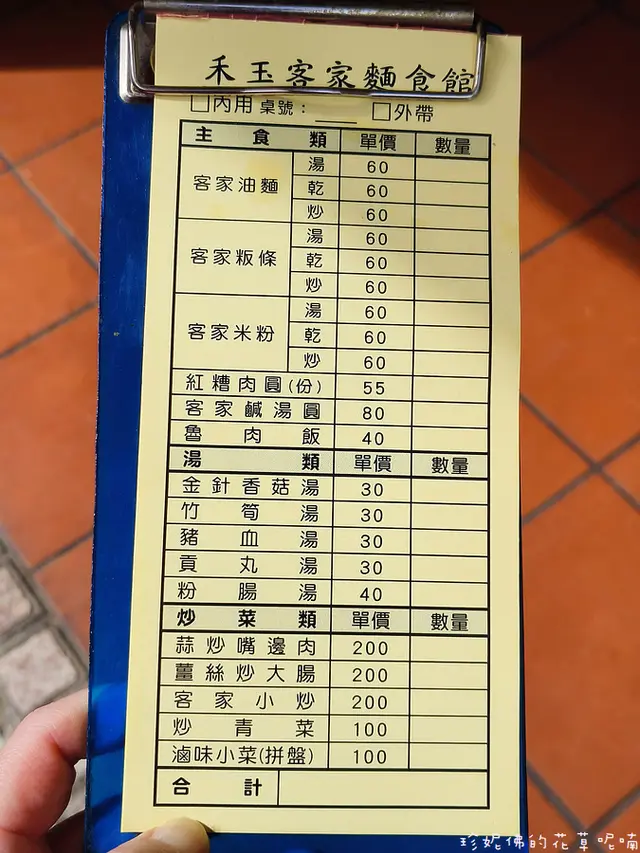 禾玉客家麵食館
□內用 桌號：___ □外帶
主食類 單價 數量
客家油麵 湯 60
乾 60
炒 60
客家粄條 湯 60
乾 60
炒 60
客家米粉 湯 60
乾 60
炒 60
紅糟肉圓(份) 55
客家鹹湯圓 80
魯肉飯 40
湯類 單價 數量
金針香菇湯 30
竹筍湯 30
豬血湯 30
貢丸湯 30
粉腸湯 40
炒菜類 單價 數量
蒜炒嘴邊肉 200
薑絲炒大腸 200
客家小炒 200
炒青菜 100
滷味小菜(拼盤) 100
合計
珍妮佛的花草呢喃